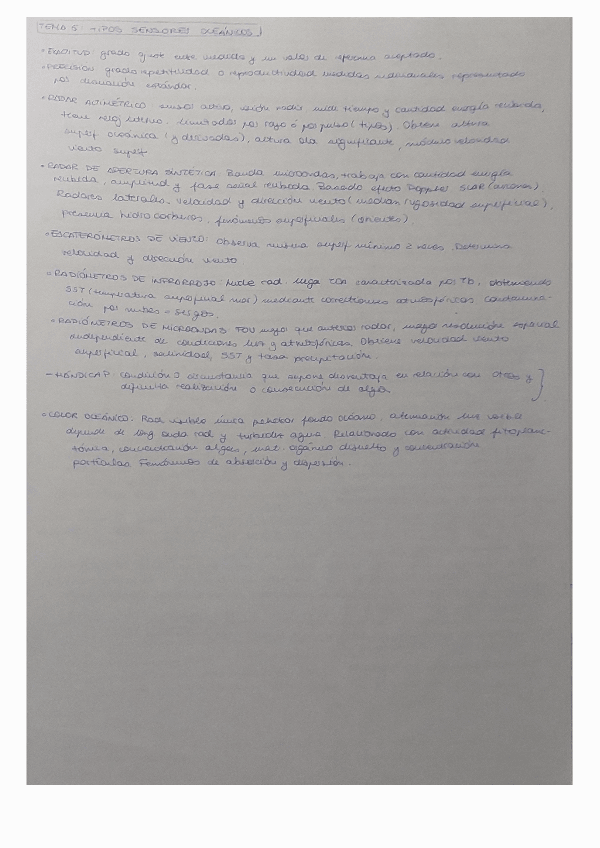 TEMA 5: TIPOS SENSORES OCEÁNICOS
• EXACTITUD: grado ajuste entre medida y un valor de referencia aceptado.
• PRECISIÓN: grado repetitividad o reproductividad medidas individuales representado
por desviación estándar.
• RADAR ALTIMÉTRICO: sensor activo, misión radar mide tiempo y cantidad energía recibida,
tiene reloj interno. Limitados por rayo ó por pulso (tipos). Obtiene altura
superf oceánica (y derivadas), altura ola significante, módulo velocidad
viento superf
• RADAR DE APERTURA SINTÉTICA: Banda microondas, trabaja con cantidad energía
recibida, amplitud y fase señal recibida. Basado efecto Doppler. SLAR (aviones).
Radares laterales. Velocidad y dirección viento (medían rugosidad superficial),
presencia hidrocarburos, fenómenos superficiales (frentes).
• ESCATERÓMETROS DE VIENTO: Observa misma superf mínimo 2 veces. Determina
velocidad y dirección viento
• RADIÓMETROS DE INFRARROJO: mide rad. caracterizada por Tb, obteniendo
SST (temperatura superficial mar) mediante correcciones atmosféricas. Contamina-
ción por nubes = sesgos.
• RADIÓMETROS DE MICROONDAS: FOV mayor que anterior radar, mayor resolución espacial
independiente de condiciones luz y atmosféricas. Obtiene velocidad viento
superficial, salinidad, SST y tasa precipitación.
— HÁNDICAP: condición o circunstancia que supone desventaja en relación con otros y
dificulta realización o consecución de algo.
• COLOR OCEÁNICO: Rad visible única penetrar fondo océano, atenuación luz visible
depende de long onda rad y turbidez agua. Relacionado con actividad fitoplanc-
tónica, concentración algas, mat. orgánica disuelta y concentración
partículas. Fenómenos de absorción y dispersión.